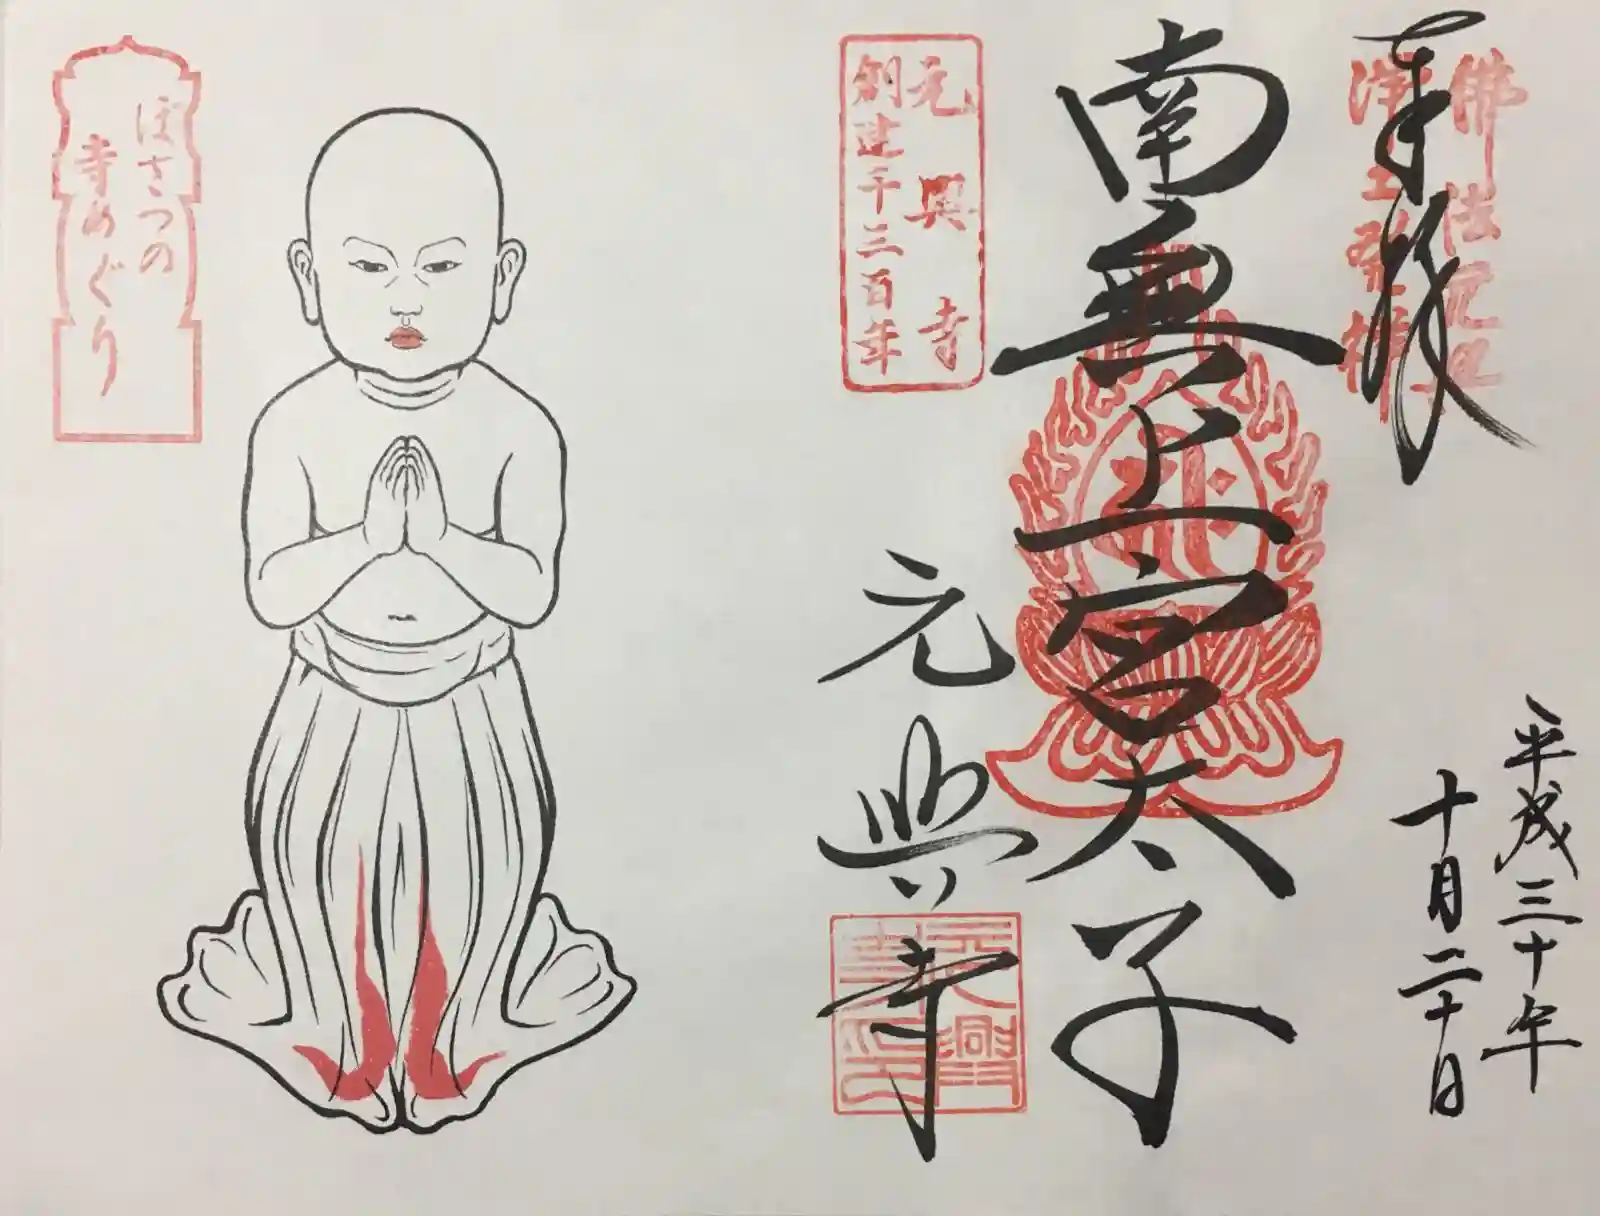 奉拝
佛法元興
浄土発祥
平成三十年
十月二十日
南無上宮太子
元興寺
創建千三百年
元興寺
元興寺印
ぼさつの
寺めぐり